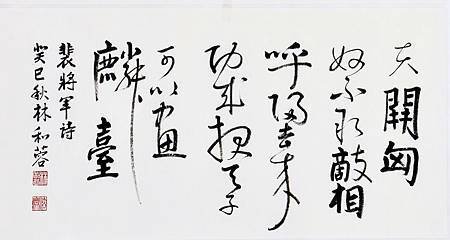 夫開匈
奴不敢敵相
呼歸去來
功成報天子
可以畫
麟臺
裴將軍詩
癸巳秋林和蓉